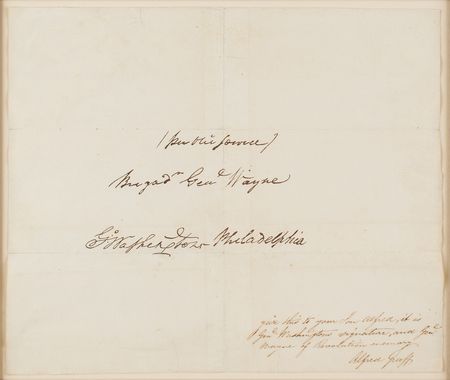 (Publice Service)
Brigad.r Gen.l Wayne
G:Washington Philadelphia
give this to your Son Alfred, it is
Gen.l Washingtons signature, and Gen.l
Wayne of Revolution memory
Alfred